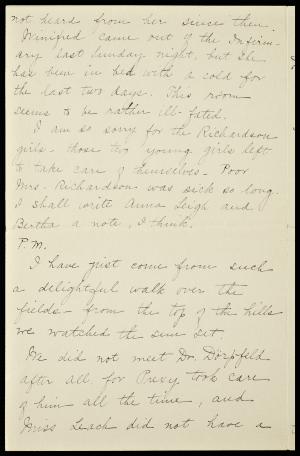 not heard from her since then.
Winifred came out of the Infirm-
ary last Sunday night, but she
has been in bed with a cold for
the last two days. This room
seems to be rather ill-fated.
I am so sorry for the Richardson
girls - those two young girls left
to take care of themselves - Poor
Mrs. Richardson was sick so long.
I shall write Anna Leigh and
Bertha a note, I think.
P.M.
I have just come from such
a delightful walk over the
fields - from the top of the hills
we watched the sun set.
We did not meet Dr. Dörpfeld
after all, for Prexy took care
of him all the time, and
Miss Leach did not have a